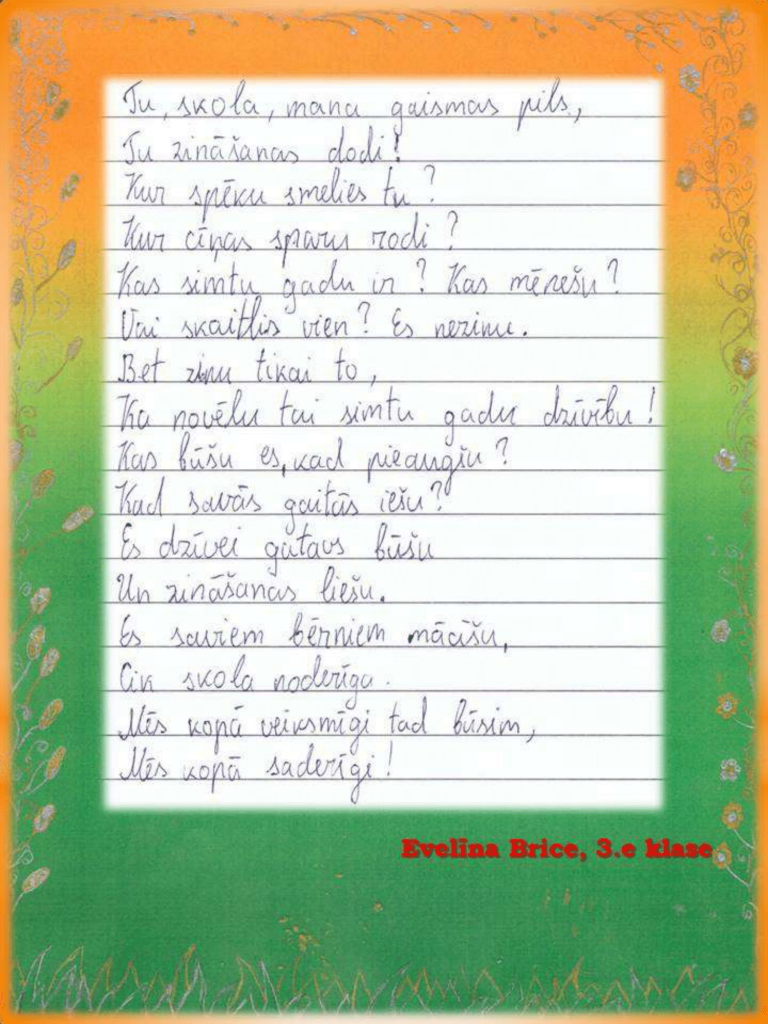 Tu, skola, mana gaismas pils,
Tu zināšanas dodi!
Kur spēku smelies tu?
Kur cīņas sparu rodi?
Kas simtu gadu ir? Kas mēnešu?
Vai skaitlis vien? Es nezinu.
Bet zinu tikai to,
Ka novēlu tai simtu gadu dzīvību!
Kas būšu es, kad pieaugšu?
Kad savās gaitās iešu?
Es dzīvei gatavs būšu
Un zināšanas liešu.
Es saviem bērniem mācīšu,
Cik skola noderīga.
Mēs kopā veiksmīgi tad būsim,
Mēs kopā saderīgi!
Evelīna Brice, 3.e klase